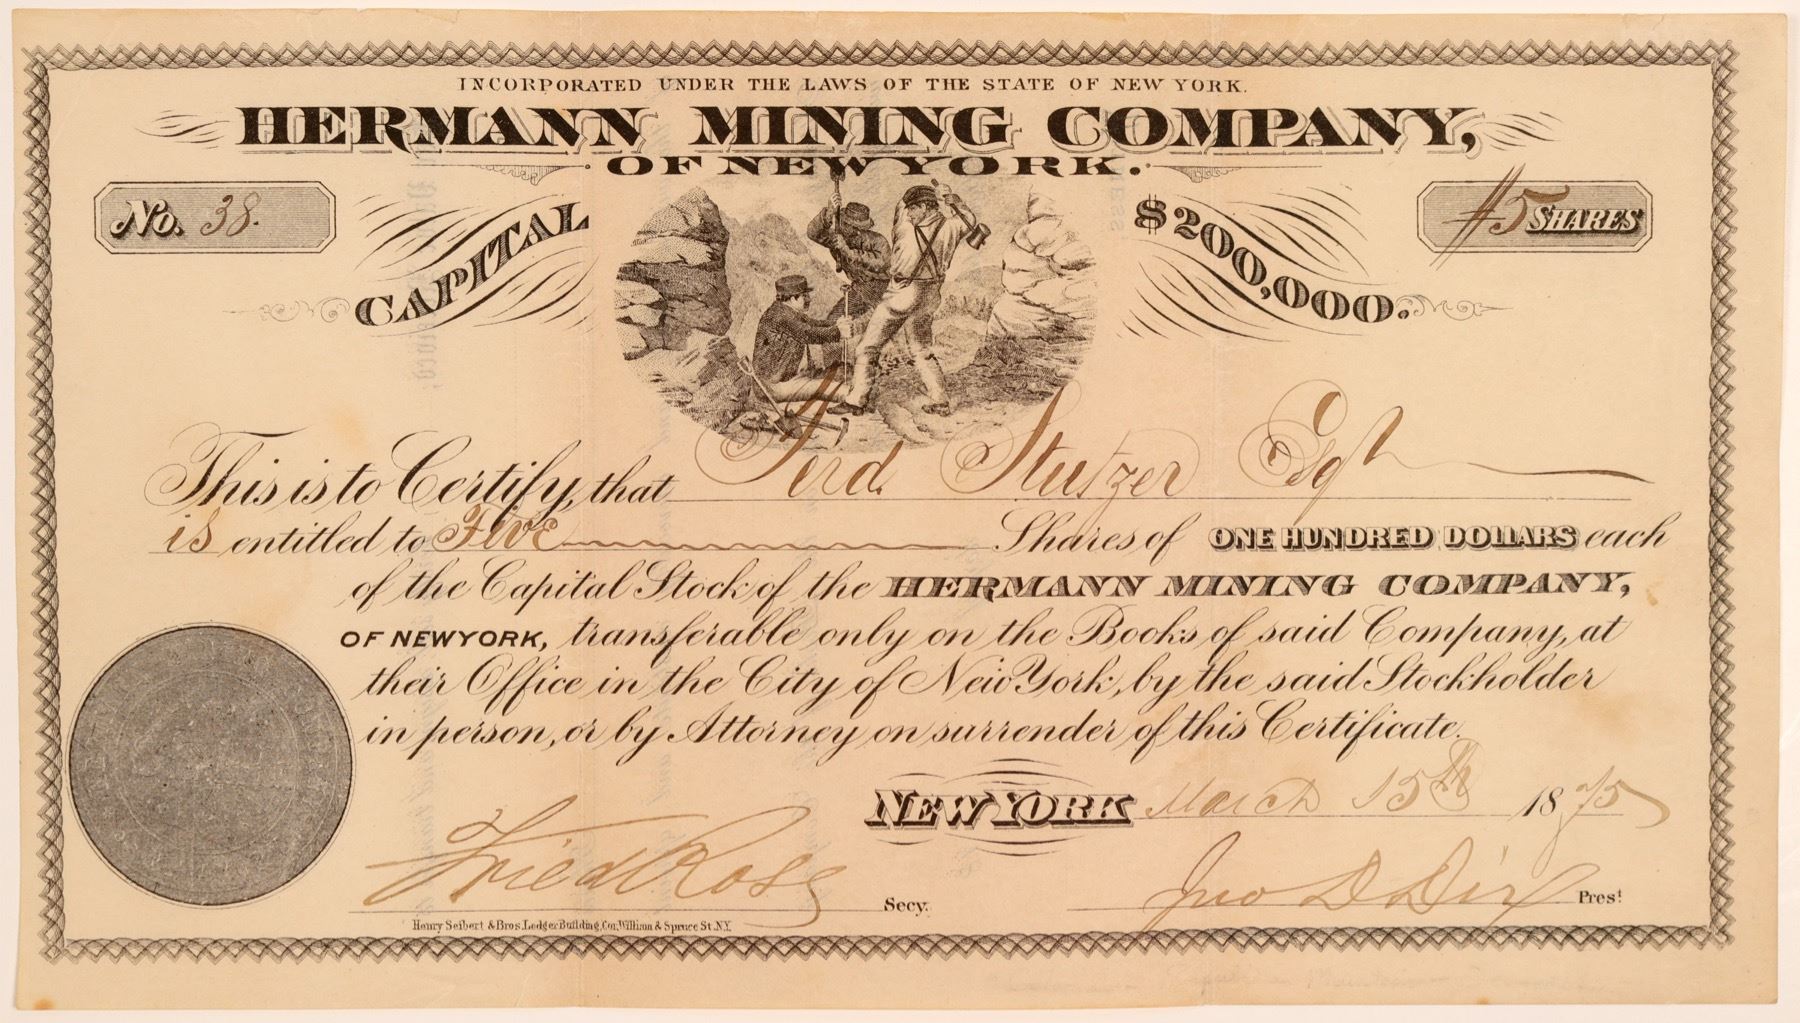 INCORPORATED UNDER THE LAWS OF THE STATE OF NEW YORK.
HERMANN MINING COMPANY,
OF NEW YORK.
No. 38.
CAPITAL $200,000.
5 SHARES
This is to Certify, that Ferd. Stutzer Esqr
is entitled to Five Shares of ONE HUNDRED DOLLARS each
of the Capital Stock of the HERMANN MINING COMPANY,
OF NEW YORK, transferable only on the Books of said Company, at
their Office in the City of New York, by the said Stockholder
in person, or by Attorney on surrender of this Certificate.
NEW YORK March 15th 1875
Fried Ross Secy.
Jno D Dix Prest
Henry Seibert & Bros. Ledger Building, Cor. William & Spruce St. N.Y.